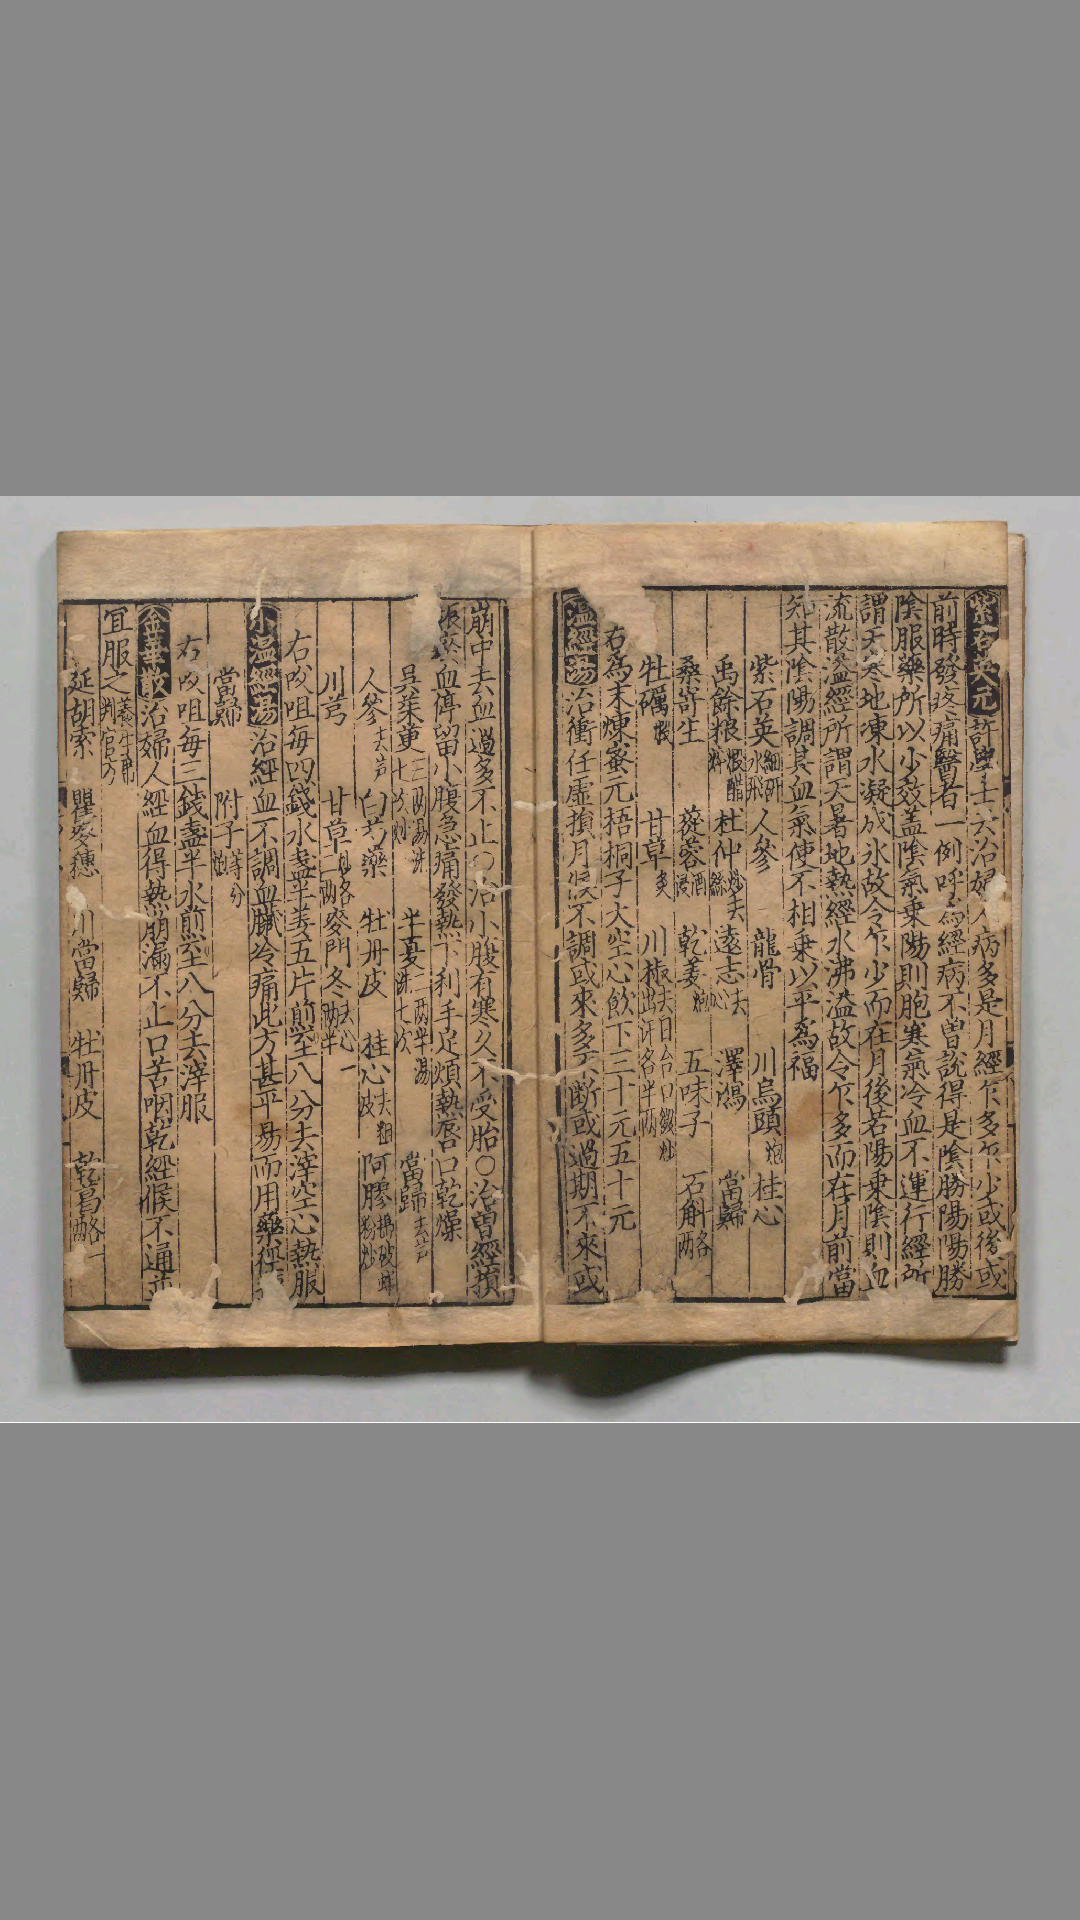 紫石英元許學士云治婦人病多是月經乍多乍少或後或
前時發疼痛醫者一例呼爲經病不曽說得是陰勝陽陽勝
陰服藥所以少效蓋陰氣乗陽則胞寒氣冷血不運行經所
謂天寒地凍水凝成氷故令乍少而在月後若陽乗陰則血
流散溢經所謂天暑地熱經水沸溢故令乍多而在月前當
知其陰陽調其血氣使不相乗以平爲福
紫石英細研水飛 人參 龍骨 川烏頭炮 桂心
禹餘粮煅醋淬 杜仲炒去絲 遠志去心 澤瀉 當歸
桑寄生 蓯蓉酒浸 乾姜炮 五味子 石斛各兩
牡礪煅 甘草炙 川椒去目合口微炒出汗各半兩
右爲末煉蜜元梧桐子大空心飲下三十元五十元
温經湯治衝任虛損月候不調或來多不断或過期不來或
崩中去血過多不止○治小腹有寒久不受胎○治曽經損
娠瘀血停留小腹急痛發熱下利手足煩熱唇口乾燥
吳茱萸三兩湯洗七次炒 半夏二兩半湯洗七次 當歸去蘆
人參去芦 白芍藥 牡丹皮 桂心去粗皮 阿膠搥破蛤粉炒
川芎 甘草已上各二兩 麥門冬去心一兩半
右㕮咀每四錢水盞半姜五片煎至八分去滓空心熱服
小温經湯治經血不調血臟冷痛此方甚平易而用藥徑
當歸 附子等分炮
右㕮咀每三錢盞半水煎至八分去滓服
金華散治婦人經血得熱崩漏不止口苦咽乾經候不通並
宜服之養生雍判官方
延胡索 瞿麥穗 川當歸 牡丹皮 乾葛各一兩